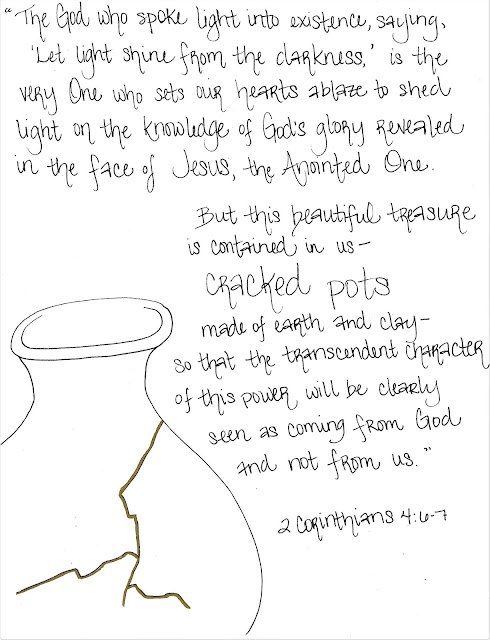 "The God who spoke light into existence, saying,
'Let light shine from the darkness,' is the
very One who sets our hearts ablaze to shed
light on the knowledge of God's glory revealed
in the face of Jesus, the Anointed One.
But this beautiful treasure
is contained in us—
cracked pots
made of earth and clay—
so that the transcendent character
of this power will be clearly
seen as coming from God
and not from us."
2 Corinthians 4:6-7